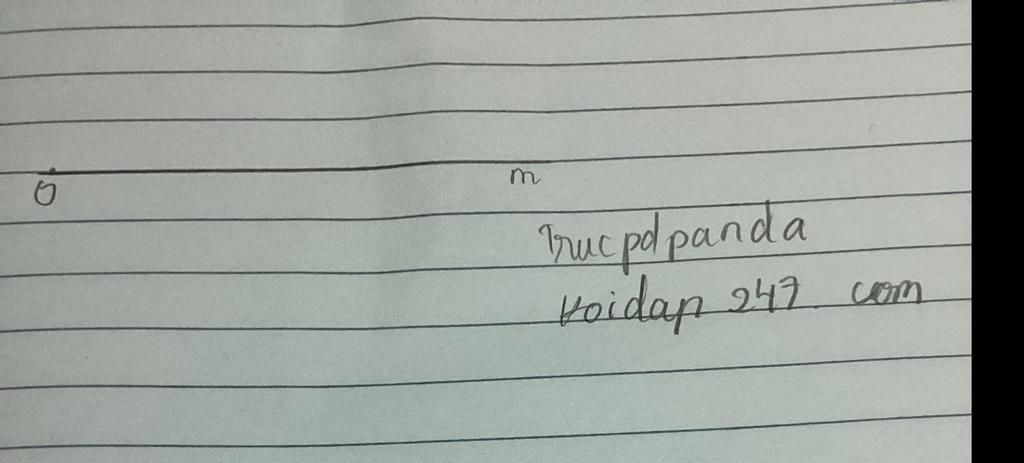 O m
Trucpdpanda
Hoidap 247. com